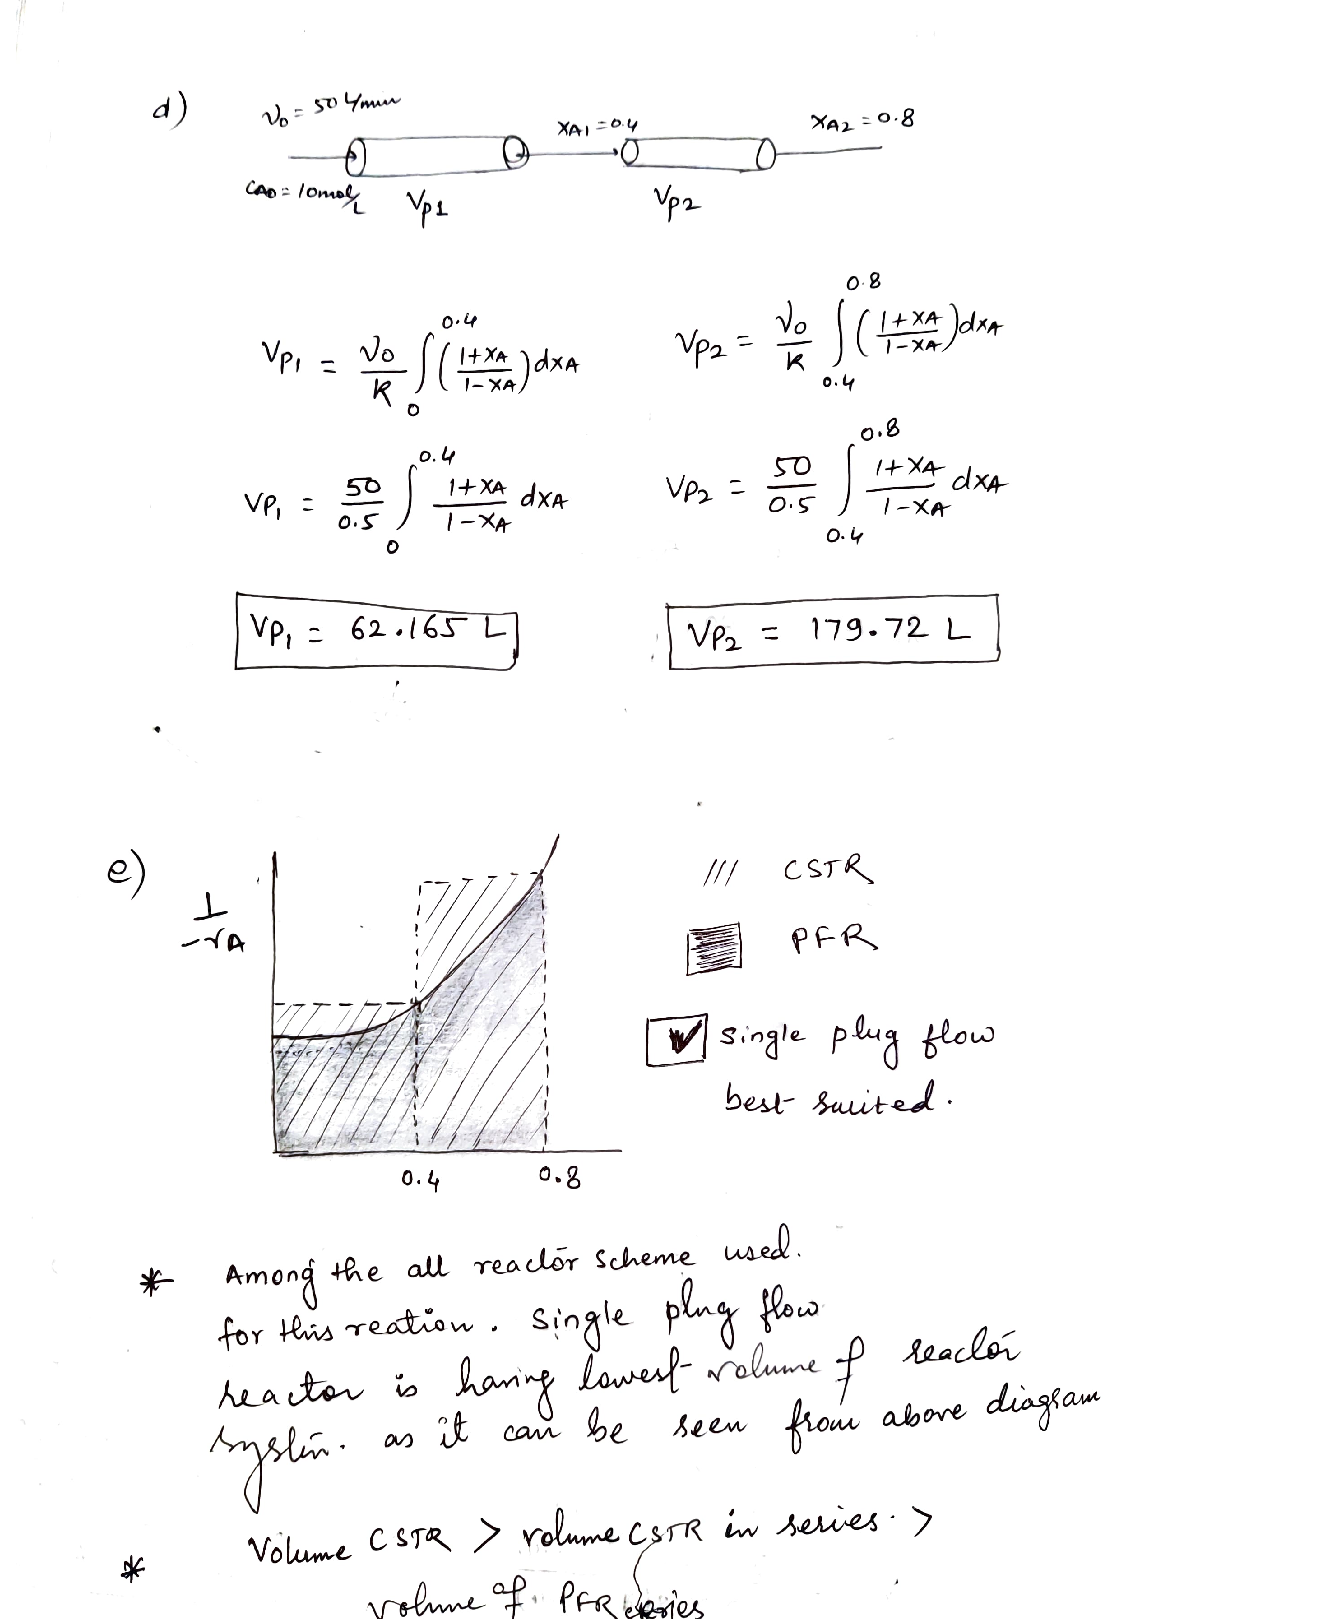 d)
V₀ = 50 L/min
XA1 = 0.4
XA2 = 0.8
CA0 = 10mol/L
Vp1
Vp2
VP₁ = V₀/K ∫₀^0.4 (1+XA / 1-XA) dXA
VP₂ = V₀/K ∫0.4^0.8 (1+XA / 1-XA) dXA
VP₁ = 50/0.5 ∫₀^0.4 1+XA / 1-XA dXA
VP₂ = 50/0.5 ∫0.4^0.8 1+XA / 1-XA dXA
VP₁ = 62.165 L
VP₂ = 179.72 L
e)
1/-rA
/// CSTR
PFR
✓ single plug flow
best suited.
0.4 0.8
* Among the all reactor scheme used.
for this reation. Single plug flow
reactor is having lowest volume of reactor
system. as it can be seen from above diagram
* Volume CSTR > volume CSTR in series. >
volume of PFR series